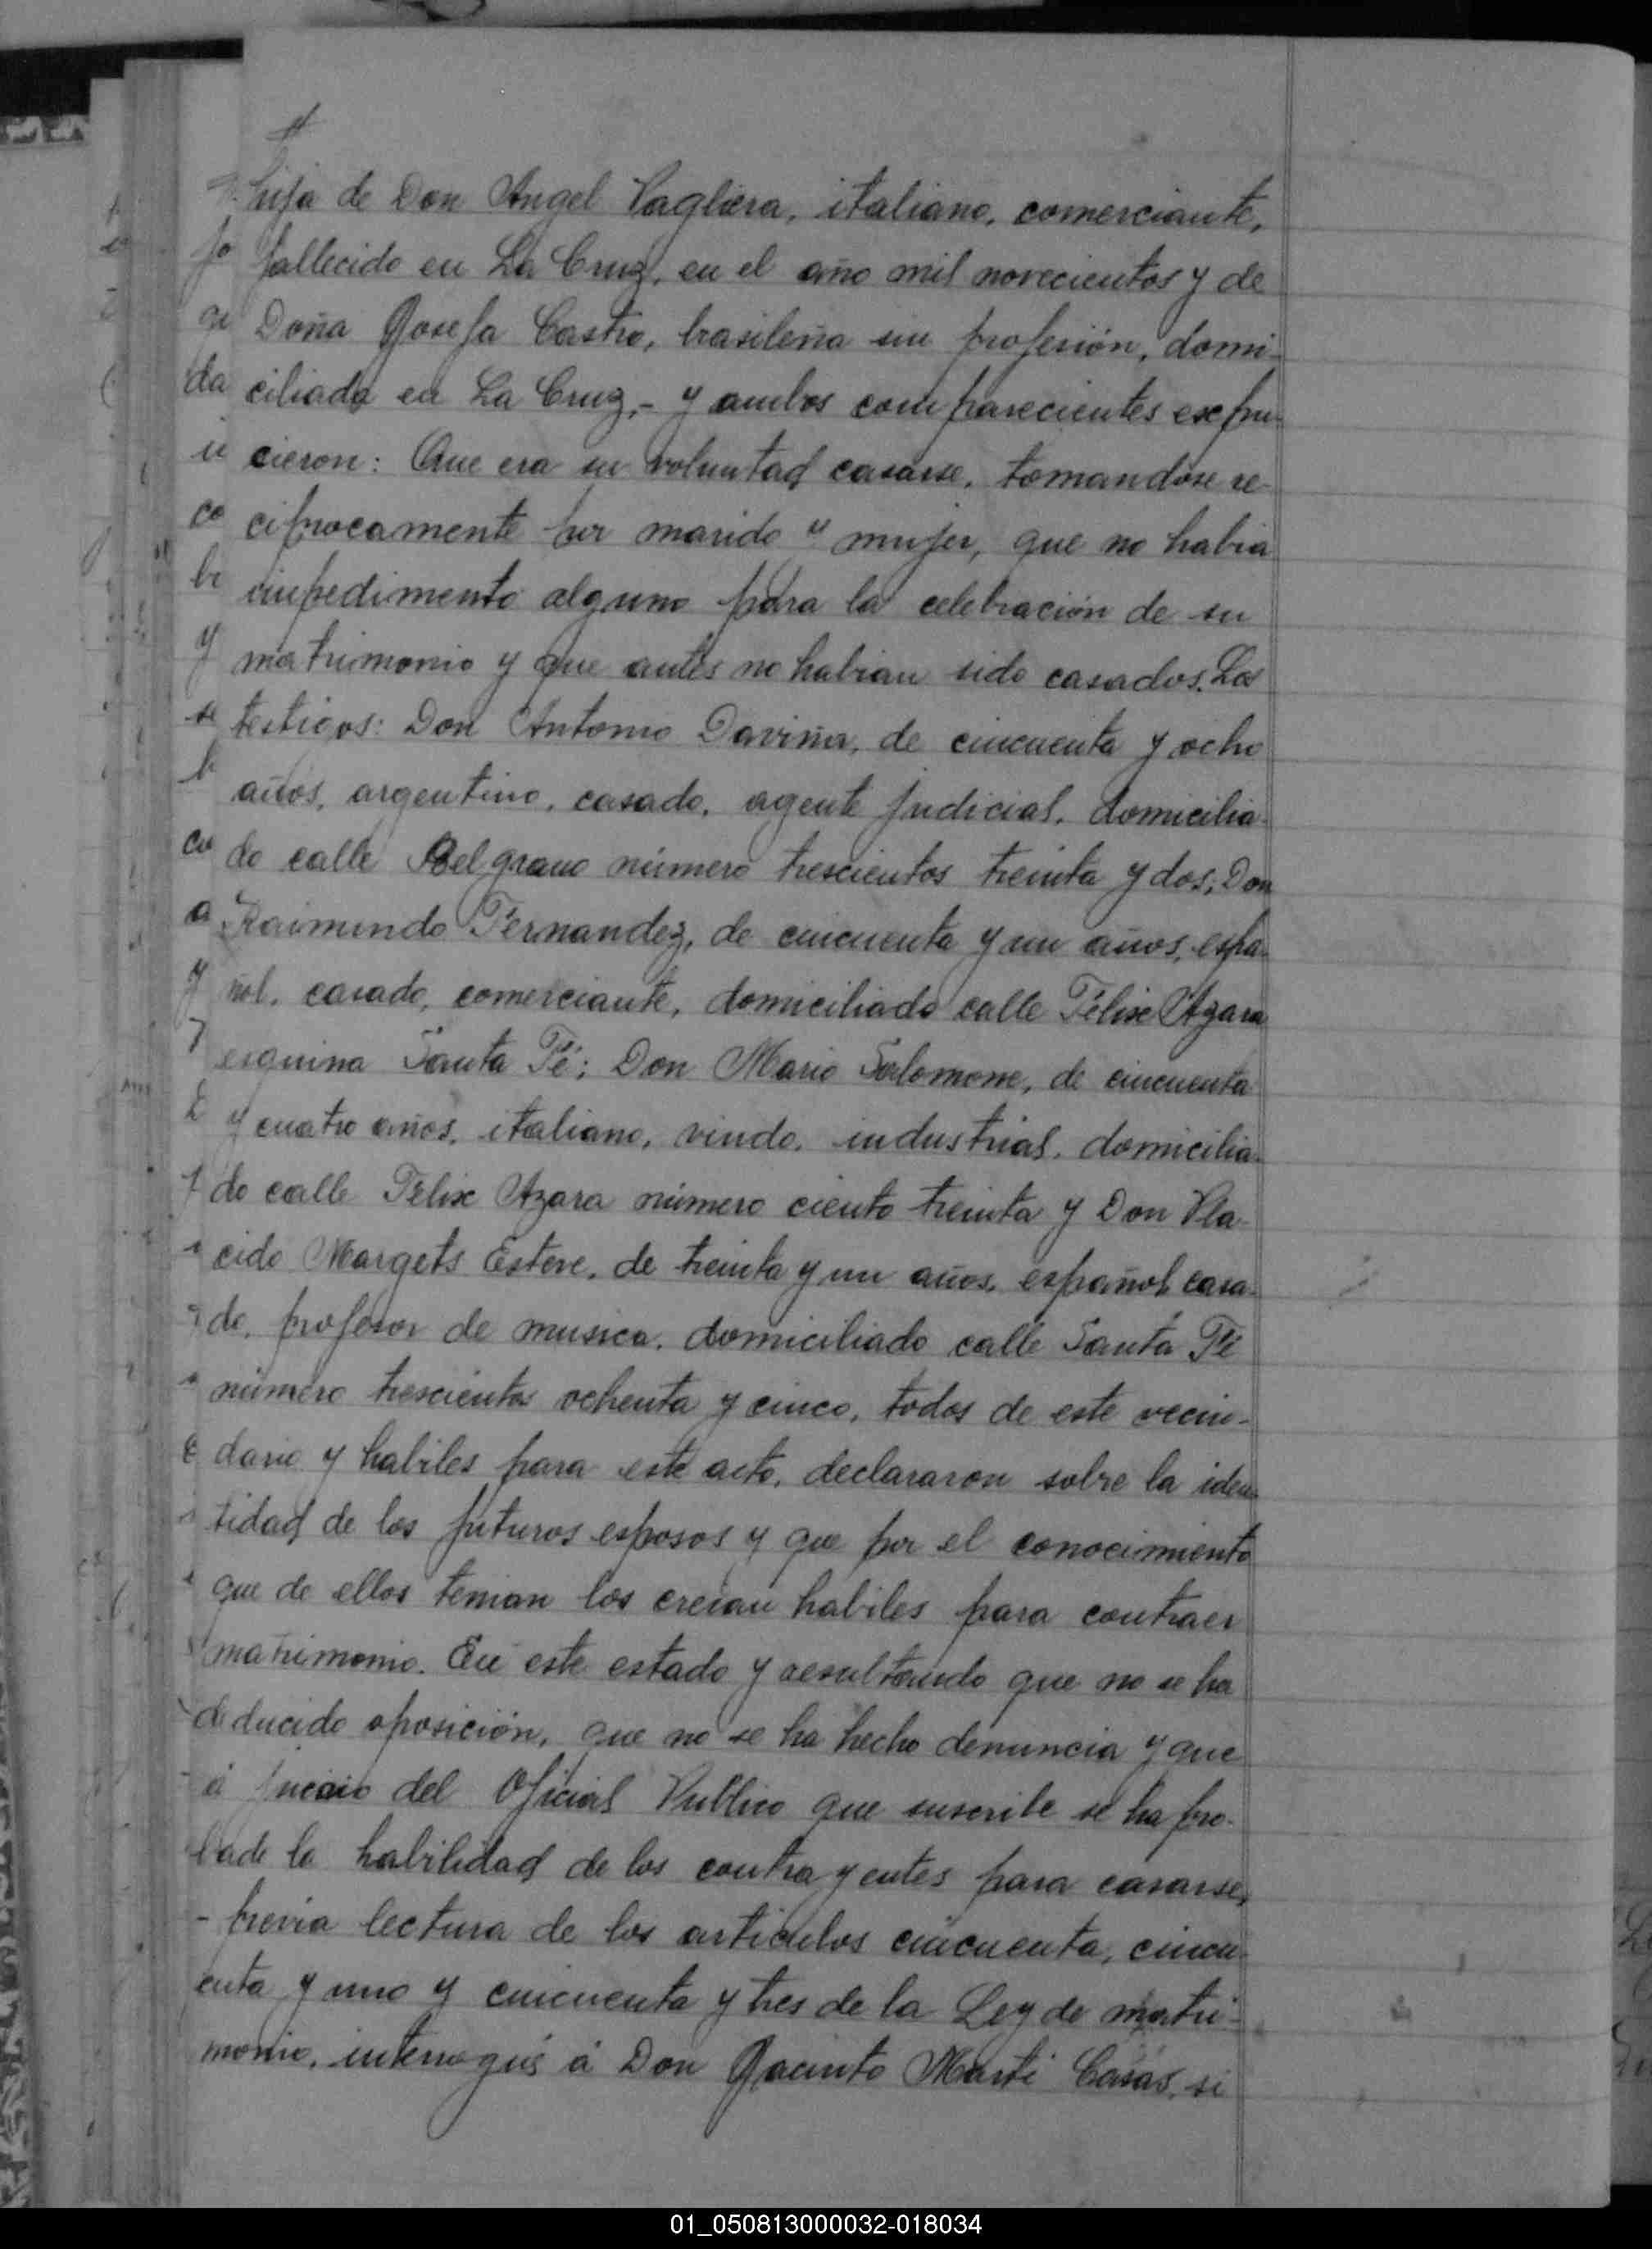 hija de Don Angel Vagliera, italiano, comerciante,
fallecido en La Cruz, en el año mil novecientos y de
Doña Josefa Castro, brasileña sin profesión, domi-
ciliada en La Cruz,- y ambos comparecientes expu-
cieron: Que era su voluntad casarse, tomandose re-
ciprocamente por marido y mujer, que no habia
impedimento alguno para la celebración de su
matrimonio y que antes no habian sido casados. Los
testigos: Don Antonio Daviña, de cincuenta y ocho
años, argentino, casado, agente judicial, domicilia-
do calle Belgrano número trescientos treinta y dos; Don
Raimundo Fernandez, de cincuenta y un años, espa-
ñol, casado, comerciante, domiciliado calle Félix Azara
esquina Santa Fé; Don Mario Salomone, de cincuenta
y cuatro años, italiano, viudo, industrial, domicilia-
do calle Félix Azara número ciento treinta y Don Pla-
cido Margets Esteve, de treinta y un años, español, casa-
do, profesor de musica, domiciliado calle Santa Fé
número trescientos ochenta y cinco, todos de este vecin-
dario y habiles para este acto, declararon sobre la iden-
tidad de los futuros esposos y que por el conocimiento
que de ellos tenian los creian habiles para contraer
matrimonio. En este estado y resultando que no se ha
deducido oposición, que no se ha hecho denuncia y que
á juicio del Oficial Publico que suscribe se ha pro-
bado la habilidad de los contrayentes para casarse,
previa lectura de los articulos cincuenta, cincu-
enta y uno y cincuenta y tres de la Ley de matri-
monio, interrogué á Don Jacinto Marti Casas, si
01_050813000032-018034